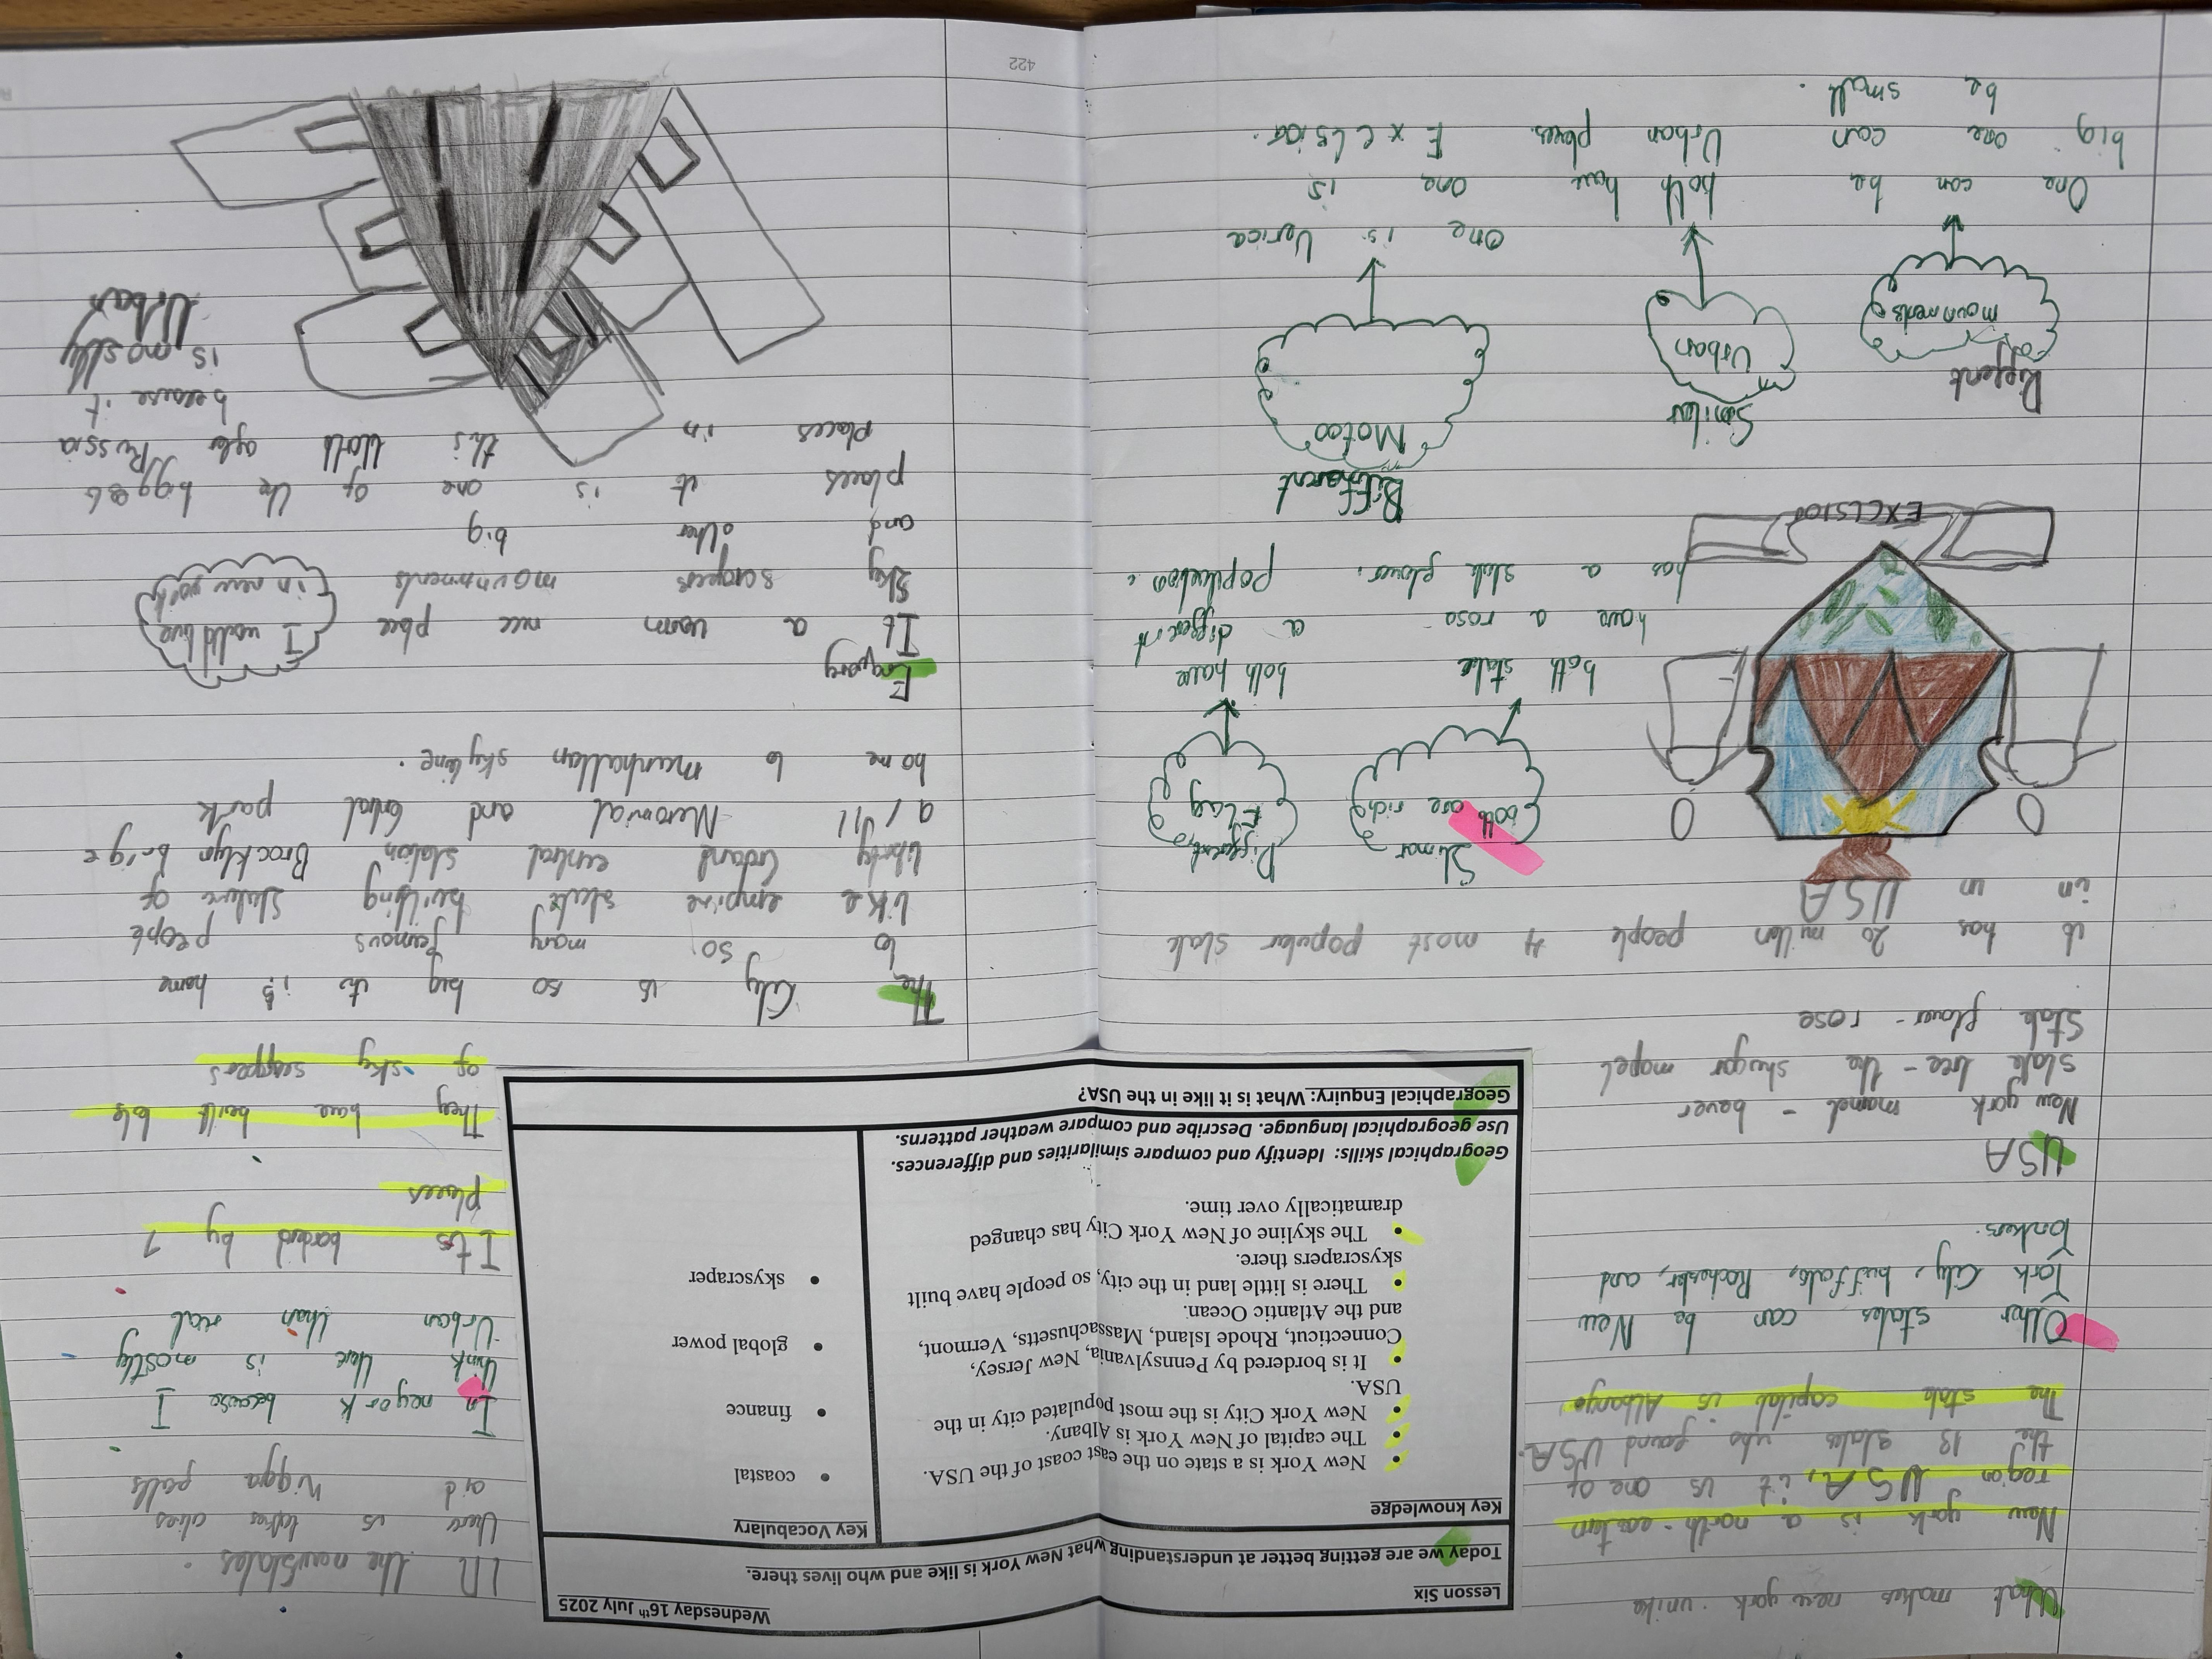 What makes new york unike
New york is a north-eastern
region USA, it is one of
the 13 states who found USA.
The state capital is Albanyo,
Other states can be New
York City, buffalo, Rochester, and
Yonkers.
USA
New york mamel - bever
state tree - the shugar mapel
State flower - rose
it has 20 millon people 4 most popular state
in in USA
EXCLSIOR
Slimar
both are rich
both state
have a rose
has a state flower.
Diffrent
Flag
both have
a diffrent
population.
Diffrent
mounments
One can be
big one can
be small.
Similar
Urban
both have
Urban places.
Different
Motoo
one is
one is
Excelsior.
Lesson Six
Wednesday 16th July 2025
Today we are getting better at understanding what New York is like and who lives there.
Key knowledge
• New York is a state on the east coast of the USA.
• The capital of New York is Albany.
• New York City is the most populated city in the
USA.
• It is bordered by Pennsylvania, New Jersey,
Connecticut, Rhode Island, Massachusetts, Vermont,
and the Atlantic Ocean.
• There is little land in the city, so people have built
skyscrapers there.
• The skyline of New York City has changed
dramatically over time.
Key Vocabulary
• coastal
• finance
• global power
• skyscraper
Geographical skills: Identify and compare similarities and differences.
Use geographical language. Describe and compare weather patterns.
Geographical Enquiry: What is it like in the USA?
In the newstates.
there is lakes
and Niggra falls
In neyork because I
think there is mostly
Urban than rral
Its borderd by 7
places
They have built lots
of sky scappers
The City is so big its is home
to so many famous people
like empire state building stature of
liberty Grand central station Brocklyn brige
9/11 Memorial and Central park
home to manhattan skyline.
Enquory
It a warm nice place
Sky scrapers mounments
and other big
places it is one of the biggest
places in this world after Russia
because it
is mostly
Urban
I would live
in new york
422